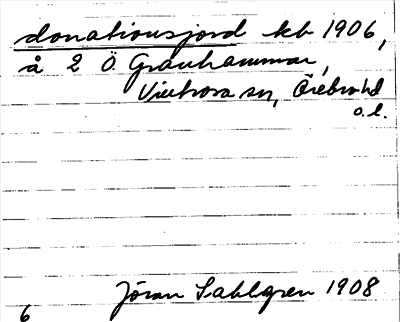 donationsjord kb 1906,
å 2 Ö. Granhammar,
Vintrosa sn, Örebro hd
o. l.
Jöran Sahlgren 1908
6